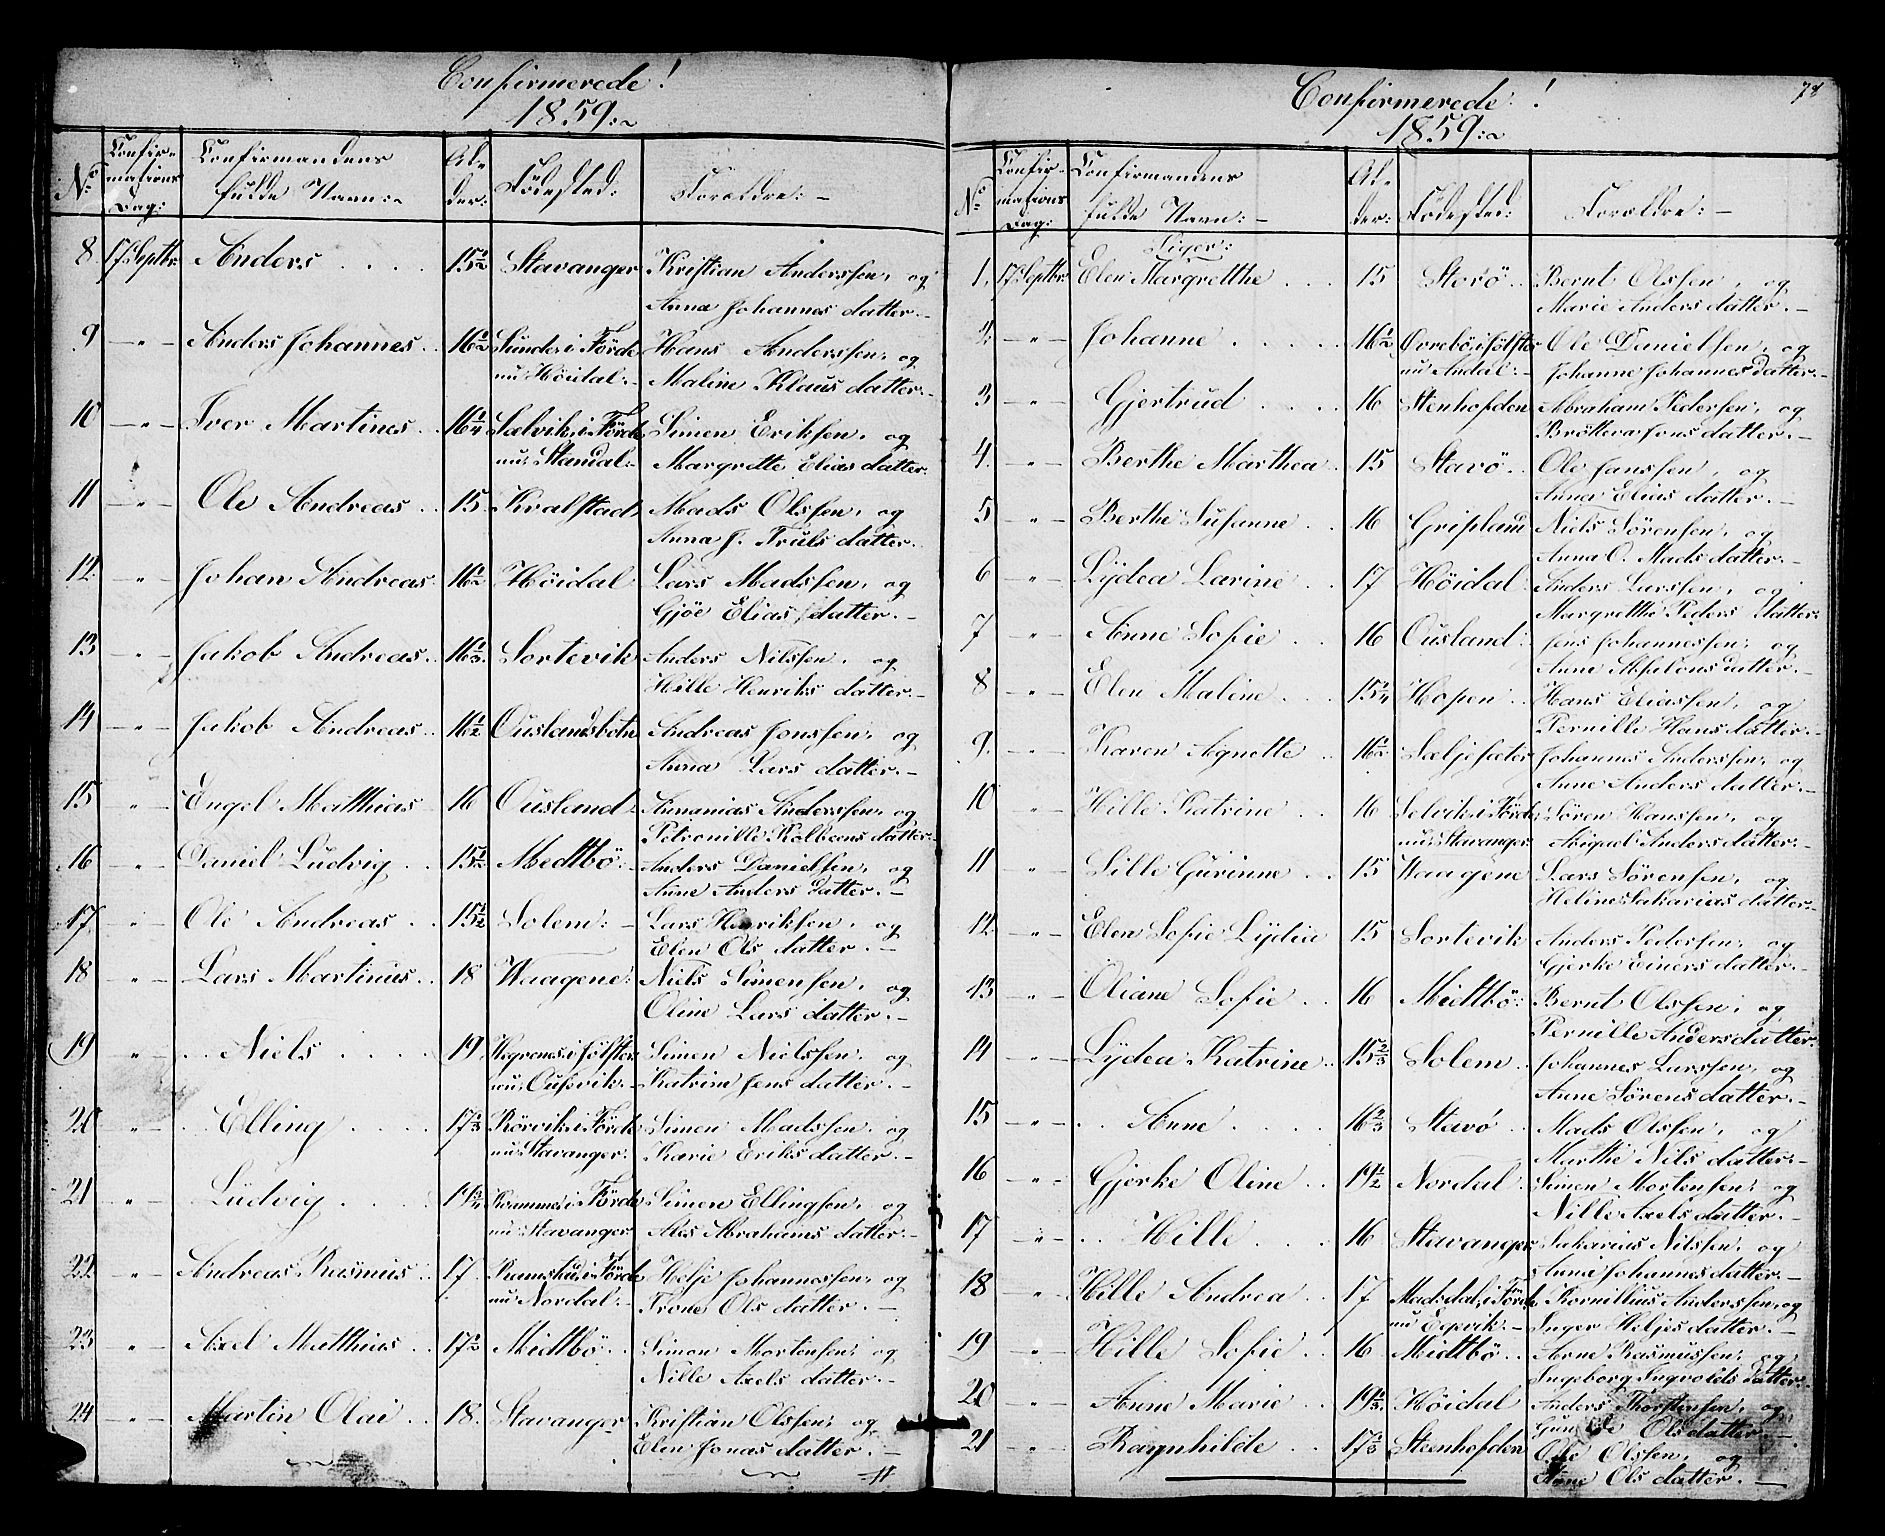 Confirmerede!
1859:~
No. Confirmations Dag: Confirmandens fulde Navn:~ Alder: Födested: Forældre:-
8. 17 Septbr. Anders 15 1/2 Stavanger Kristian Anderssen, og
Anna Johannes datter.-
9 -"- Anders Johannes 16 1/2 Sunde, i Förde Hans Anderssen, og
nu: Höidal:- Malim Klaus datter.-
10 -"- Iver Martines 16 1/4 Sælvik, i Förde Simen Eriksen, og
nu: Standal:- Margrette Elias datter.
11 -"- Ole Andreas 15 Kvalstad Mads Olssen, og
Anna J. Truls datter.
12 -"- Johan Andreas 16 1/2 Höidal Lars Madssen, og
Gjöe Elias datter.-
13 -"- Jakob Andreas 16 1/3 Sortevik Anders Nilssen, og
Hille Henriks datter.-
14 -"- Jakob Andreas 16 1/2 Ouslandsbotn Andreas Jonssen, og
Anna Lars datter.-
15 -"- Engel Matthias 16 Ousland Annanias Anderssen, og
Petronille Kolbeens datter.-
16 -"- Daniel Ludvig 15 1/2 Medtbö:- Anders Danielsen, og
Anne Anders datter.-
17 -"- Ole Andreas 15 1/2 Solem:- Lars Henriksen, og
Elen Ols datter.-
18 -"- Lars Martinus 18 Waagene: Niels Simensen, og
Oline Lars datter.-
19 -"- Niels 19 i Jölster Simen Nielssen, og
nu: Ousvik:- Katrine Jens datter.-
20 -"- Elling 17 1/3 Rörvik, i Förde Simen Madssen, og
nu: Stavanger: Karie Eriks datter.-
21 -"- Ludvig i Förde Simen Ellingsen, og
nu: Stavanger Ales Abrahams datter:-
22 -"- Andreas Rasmus 17 i Förde Helje Johannessen, og
nu Nordal:- Trone Ols datter.-
23 -"- Axel Matthias 17 1/2 Midtbö Simon Mortensen, og
Nille Axels datter.-
24 -"- Martin Olai 18 Stavanger Kristian Olssen, og
Elen Jonas datter.-
Confirmerede:!
78
1859:~
No. Confirmations Dag: Confirmandens fulde Navn:- Alder: Födested: Forældre:-
Piger:
1. 17 Septbr. Elen Margretthe 15 Storö Bernt Olssen, og
Marie Anders datter.-
2: -"- Johanne 16 1/2 Övrebö, i Jölster Ole Danielsen, og
nu Andal:- Johanne Johannes datter.-
3 -"- Gjertrud 16 Stenhofden Abraham Pedersen, og
Brötteva Jons datter.-
4 -"- Berthe Marthea 15 Stavö Ole Janssen, og
Anna Elias datter.-
5 -"- Berthe Susanne 16 Gripland Niels Sörensen, og
Anna O. Mads datter.-
6 -"- Lydea Larine 17 Höidal Anders Larssen, og
Margretthe Peders datter.
7 -"- Anne Sofie 16 Ousland Jens Johannessen, og
Anne Absalons datter.-
8 -"- Elen Maline 15 1/4 Hopen Hans Eliassen, og
Pernille Hans datter.-
9 -"- Karen Agnette 16 1/2 Sæljesæter Johannes Anderssen, og
Anne Anders datter.-
10 -"- Hille Katrine 16 Selvik, i Förde Sören Hanssen, og
nu: Stavanger Abigael Anders datter:-
11 -"- Sille Gurinne 15 Waagene Lars Sörensen, og
Heline Sakarias datter.-
12 -"- Elen Sofie Lydia 15 Sortevik Anders Pedersen, og
Gjerke Einers datter.-
13 -"- Oliane Sofie 16 Midtbö: Bernt Olssen, og
Pernille Anders datter.
14 -"- Lydea Katrine 15 2/3 Solem Johannes Larssen, og
Anne Sörens datter.-
15 -"- Anne 16 2/3 Stavö Mads Olssen, og
Marthe Nils datter.-
16 -"- Gjerke Oline 19 1/2 Nordal Simen Mortensen, og
Nille Axels datter.-
17 -"- Hille 16 Stavanger Sakarias Nilssen, og
Anna Johannes datter.-
18 -"- Hille Andrea 17 Madsdal, i Förde Kornillius Anderssen, og
nu Eepvik.- Inger Heljes datter.-
19 -"- Hille Sofie 16 Midtbö Arne Rasmussen, og
Ingeborg Ingvolds datter.
20 -"- Anne Marie 19 1/3 Höidal Anders Thorstensen, og
Ols datter.-
21 -"- Ragnhilde 17 1/3 Steenhofden Ole Olssen, og
Anne Ols datter.-